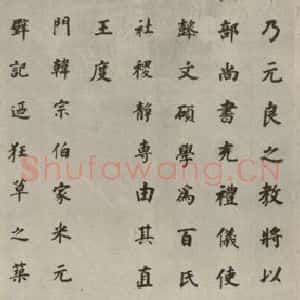 乃元良之教將以
部尚書充禮儀使
懿文碩學爲百氏
社稷靜專由其直
王度
門韓宗伯家米元
記狂草之
Shufawang.CN